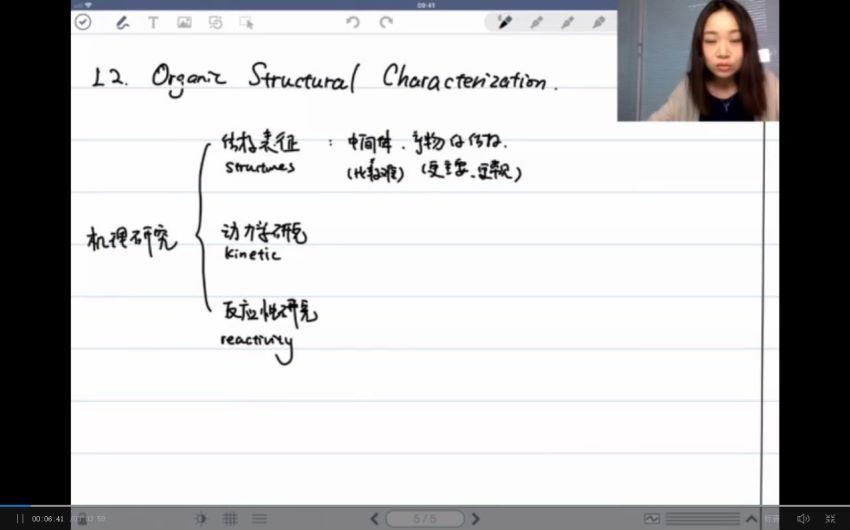 09:41
L2. Organic Structural Characterization.
结构表征 : 中间体、产物的结构.
structures
(比较难) (更主要、更常见)
机理研究
动力学研究
kinetic
反应性研究
reactivity
00:06:41
5/5